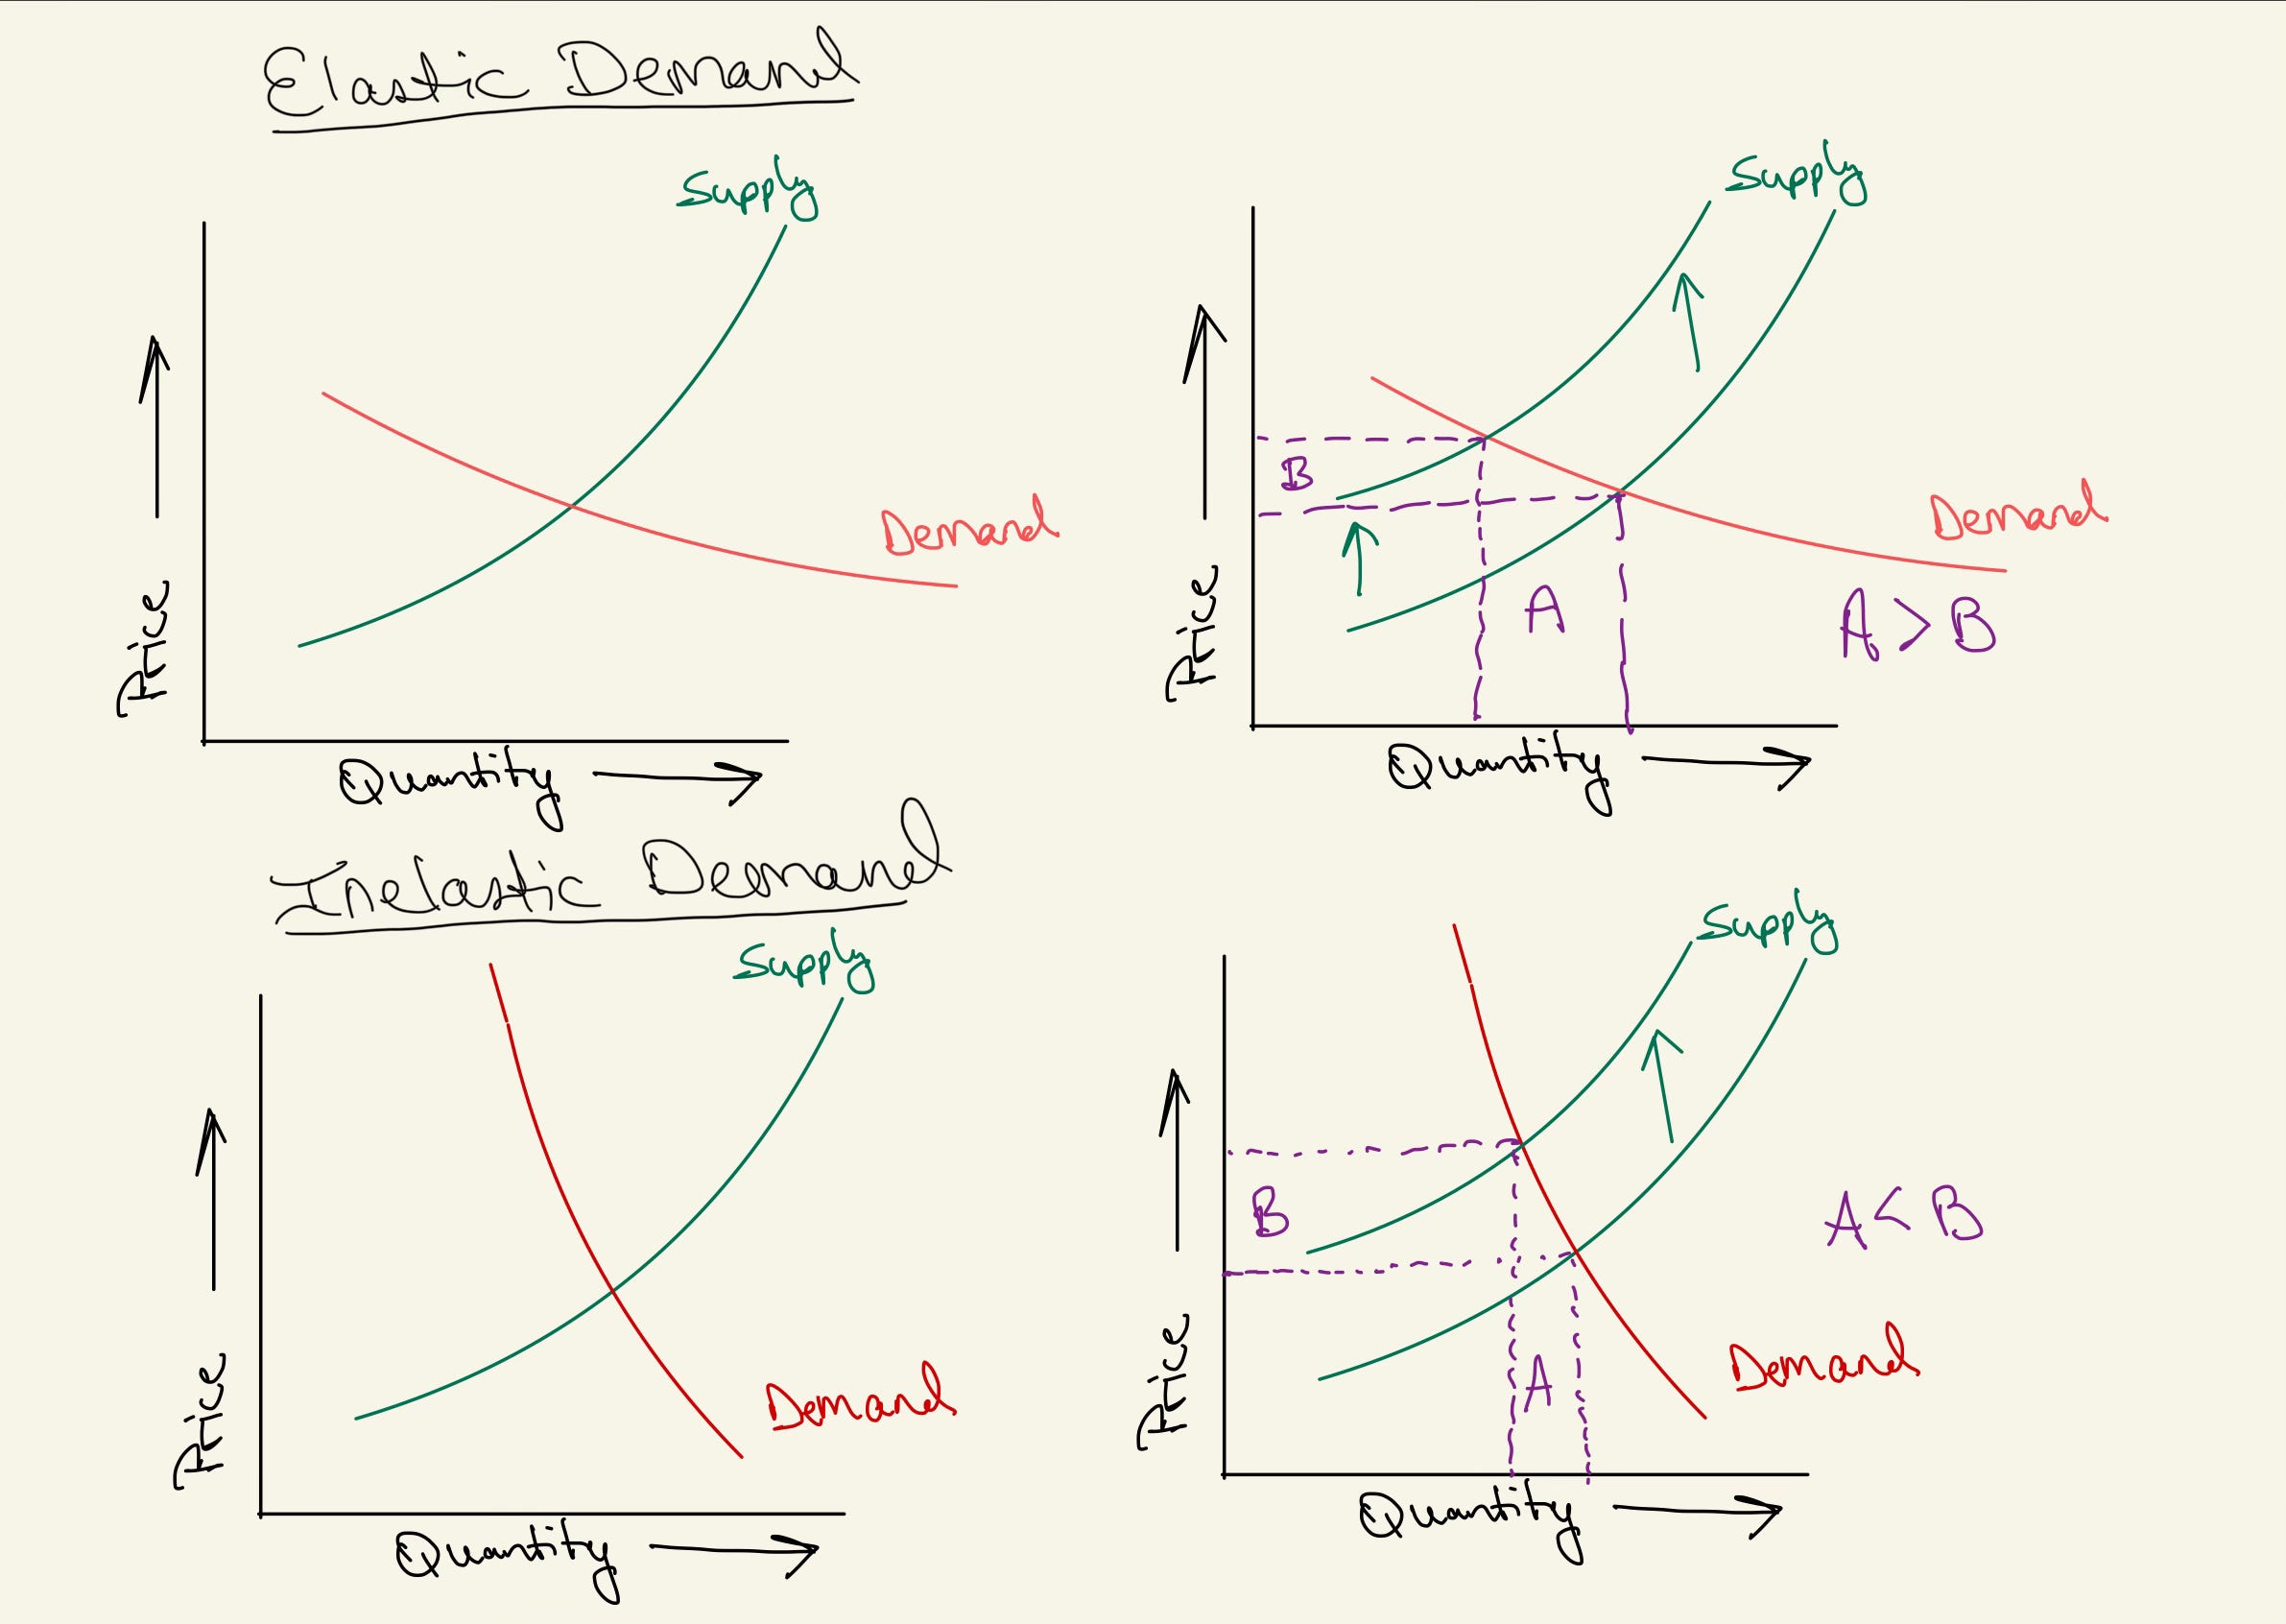 Elastic Demand
Supply
Demand
Price
Quantity
Supply
B
A
Demand
A > B
Price
Quantity
Inelastic Demand
Supply
Demand
Price
Quantity
Supply
B
A < B
A
Demand
Price
Quantity